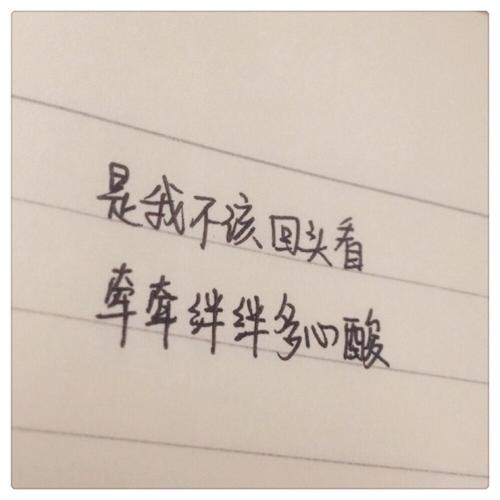 是我不该回头看
牵牵绊绊多心酸